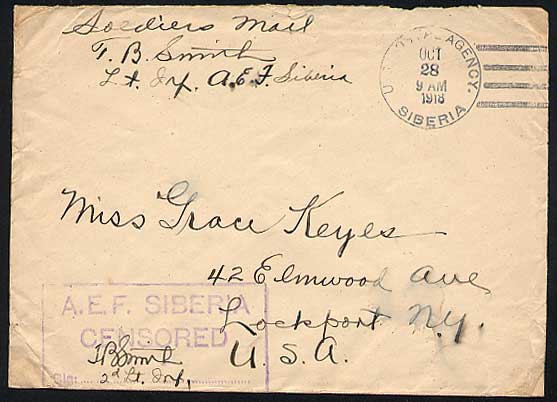 Soldiers Mail
T. B. Smirt
Lt. Inf. A.E.F. Siberia
U.S. POSTAL AGENCY.
OCT
28
9 AM
1918
SIBERIA
Miss Grace Keyes
42 Elmwood Ave
Lockport N.Y.
U.S.A.
A.E.F. SIBERIA
CENSORED
TBSmirt
Sig.
2d Lt. Inf.